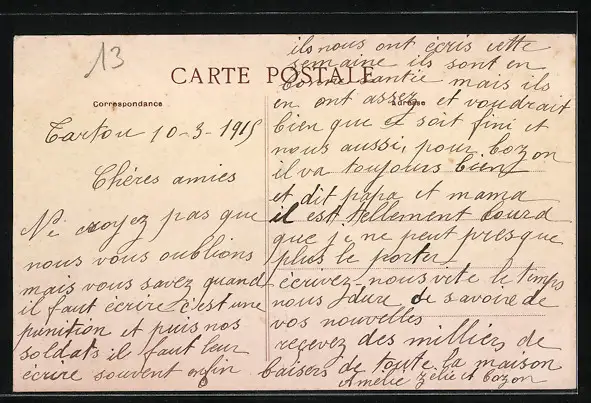 13
CARTE POSTALE
Correspondance
Adresse
Tartou 10-3-1915
Chéres amies
Ne croyez pas que
nous vous oublions
mais vous savez quand
il faut écrire c'est une
punition et puis nos
soldats il faut leur
écrire souvent enfin
ils nous ont écris cette
semaine ils sont en
bonne santie mais ils
en ont assez et voudrait
bien que ce soit fini et
nous aussi, pour bozon
il va toujours bien
et dit papa et mama
il est tellement lourd
que je ne peut presque
plus le porter
écrivez-nous vite le temps
nous dure de savoire de
vos nouvelles
reçevez des milliers de
baisers de toute la maison
Amélie Zélie et bozon